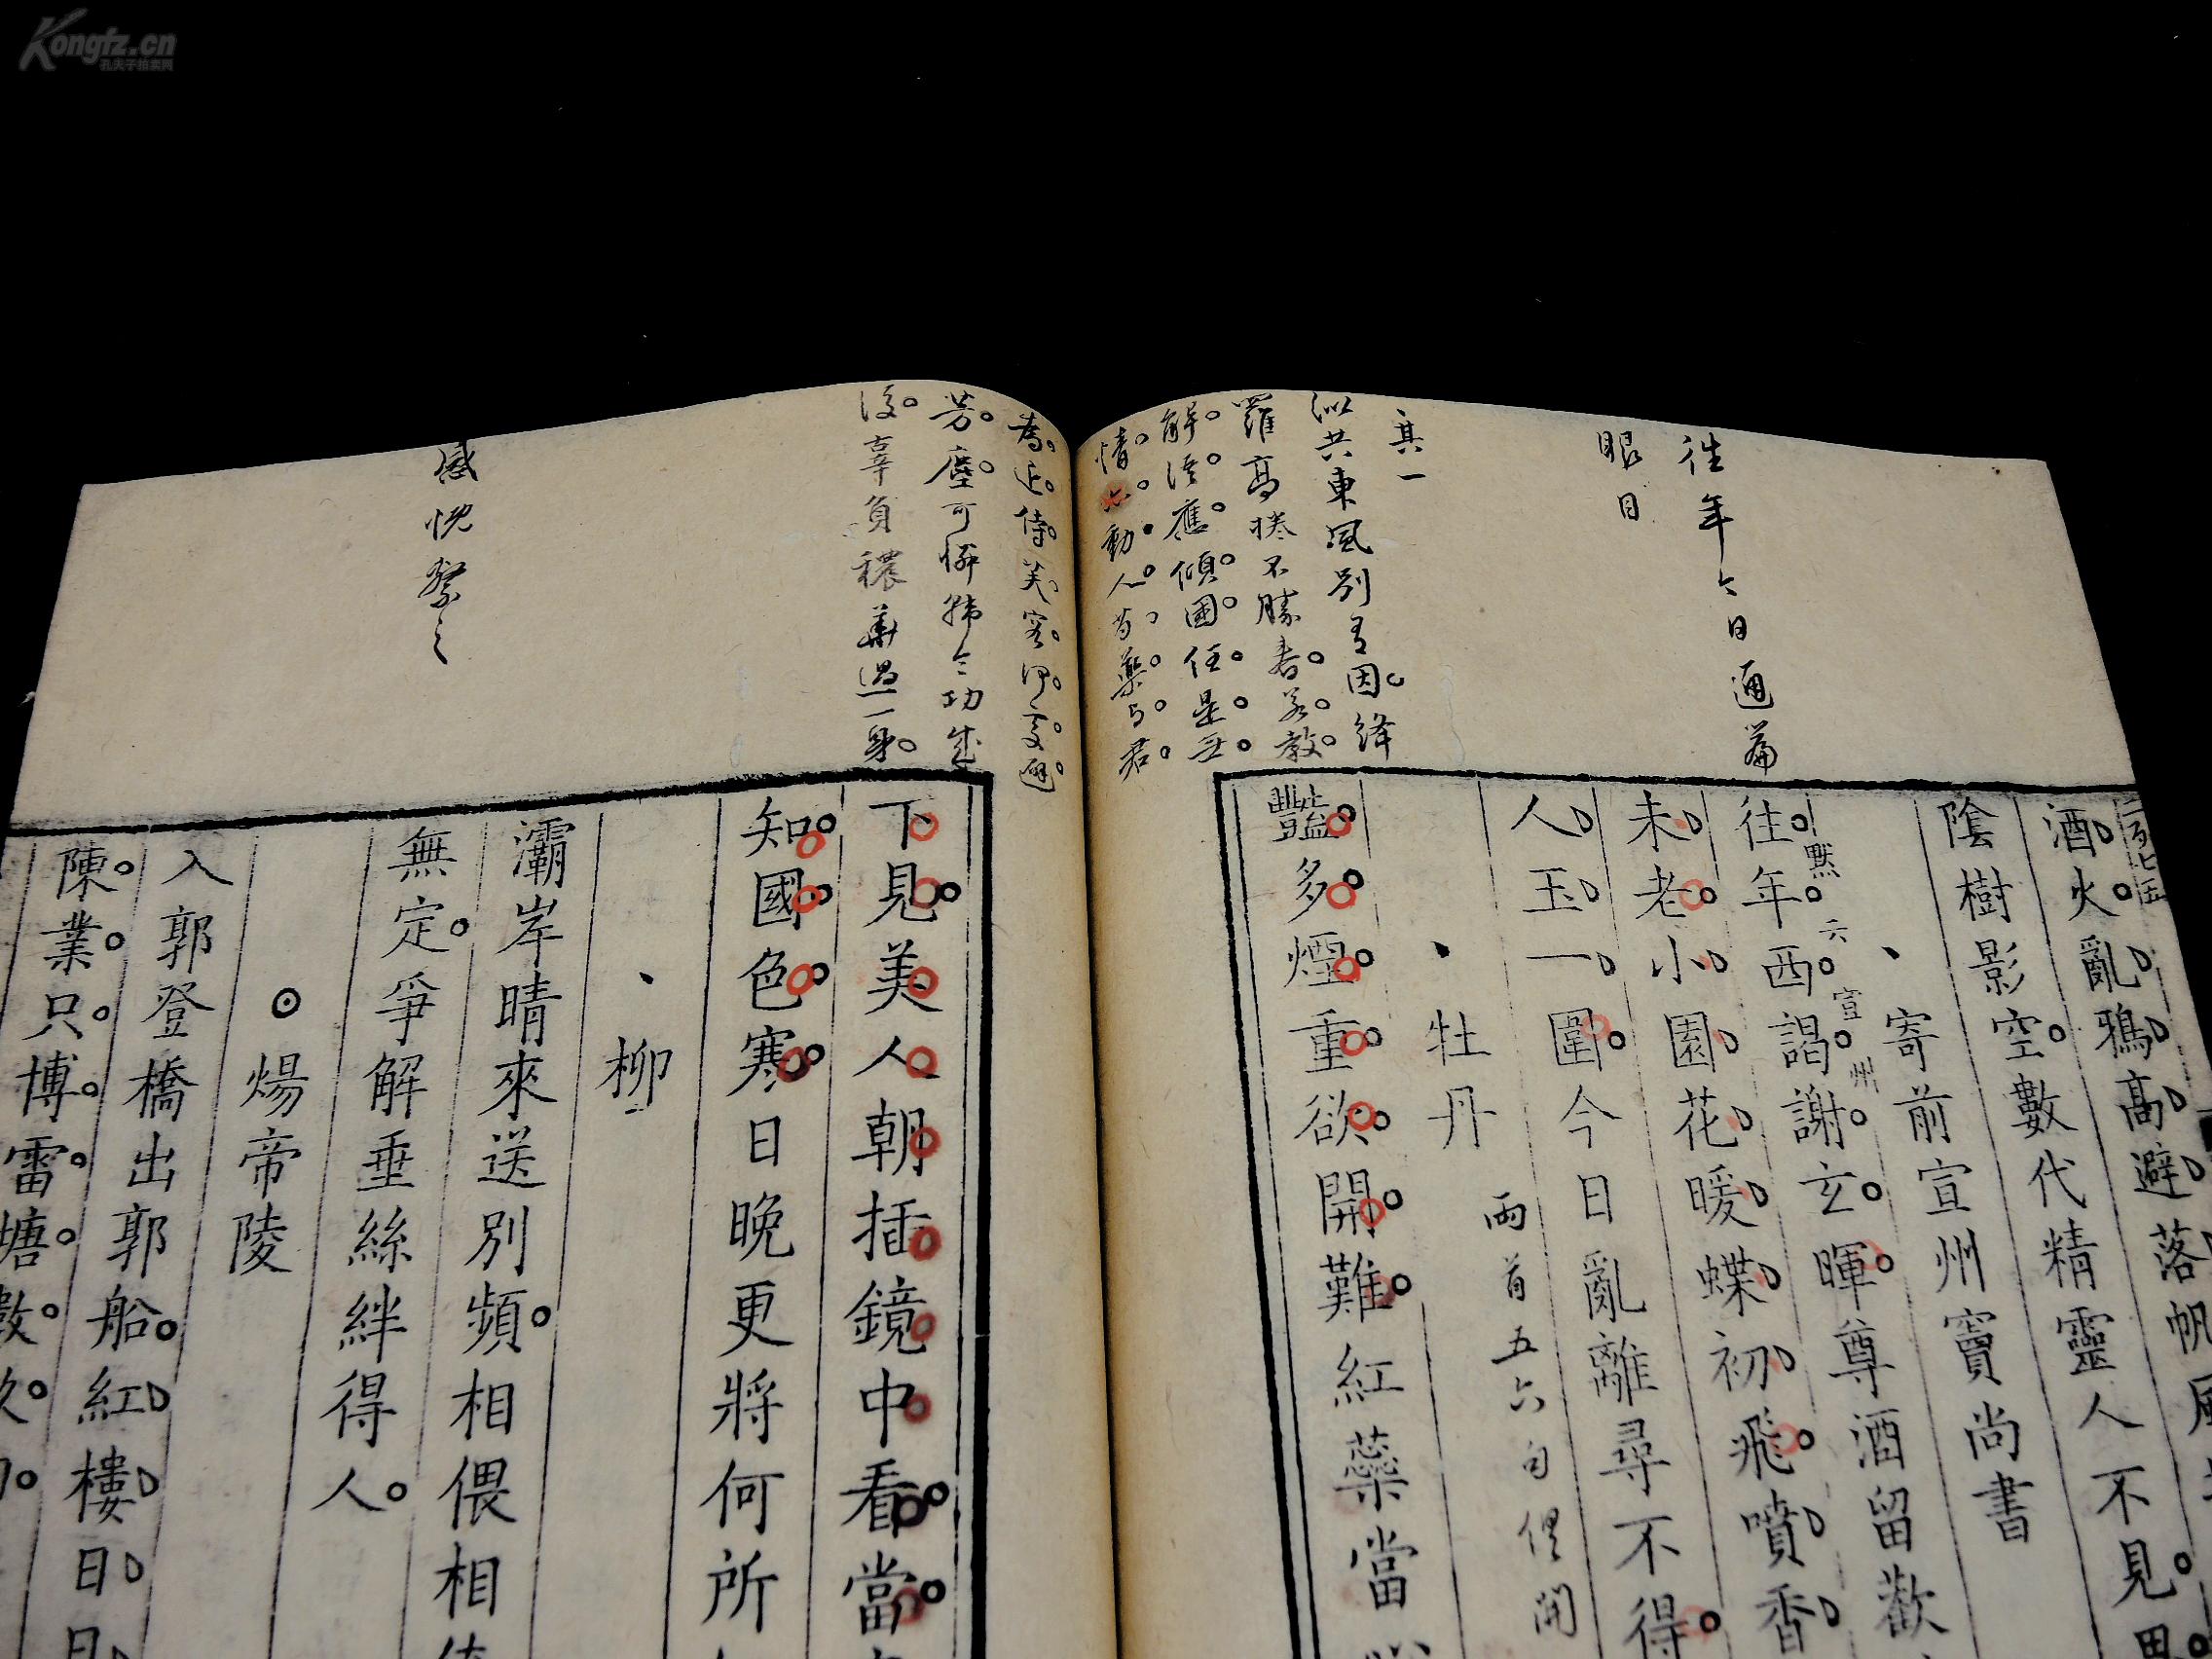 Kongfz.cn
孔夫子拍卖网
往年今日通篇
眼目
其一
似共東風別有因絳
羅高捲不勝春若教
解語應傾國任是無
情亦動人芍藥与君
為近侍芙蓉何處避
芳塵可憐韓令功成
後辜負穠華過一身
感慨系之
酒火亂鴉高避落帆
陰樹影空數代精靈人不見
寄前宣州竇尚書
往年西謁謝玄暉尊酒留歡
默 六宣州
未老小園花暖蝶初飛噴香
人玉一圍今日亂離尋不得
牡丹
兩首五六句俚開
豔多煙重欲開難紅蘂當
下見美人朝插鏡中看當
知國色寒日晚更將何所
柳
灞岸晴來送別頻相偎相
無定爭解垂絲絆得人
煬帝陵
入郭登橋出郭船紅樓日日
陳業只博雷塘數